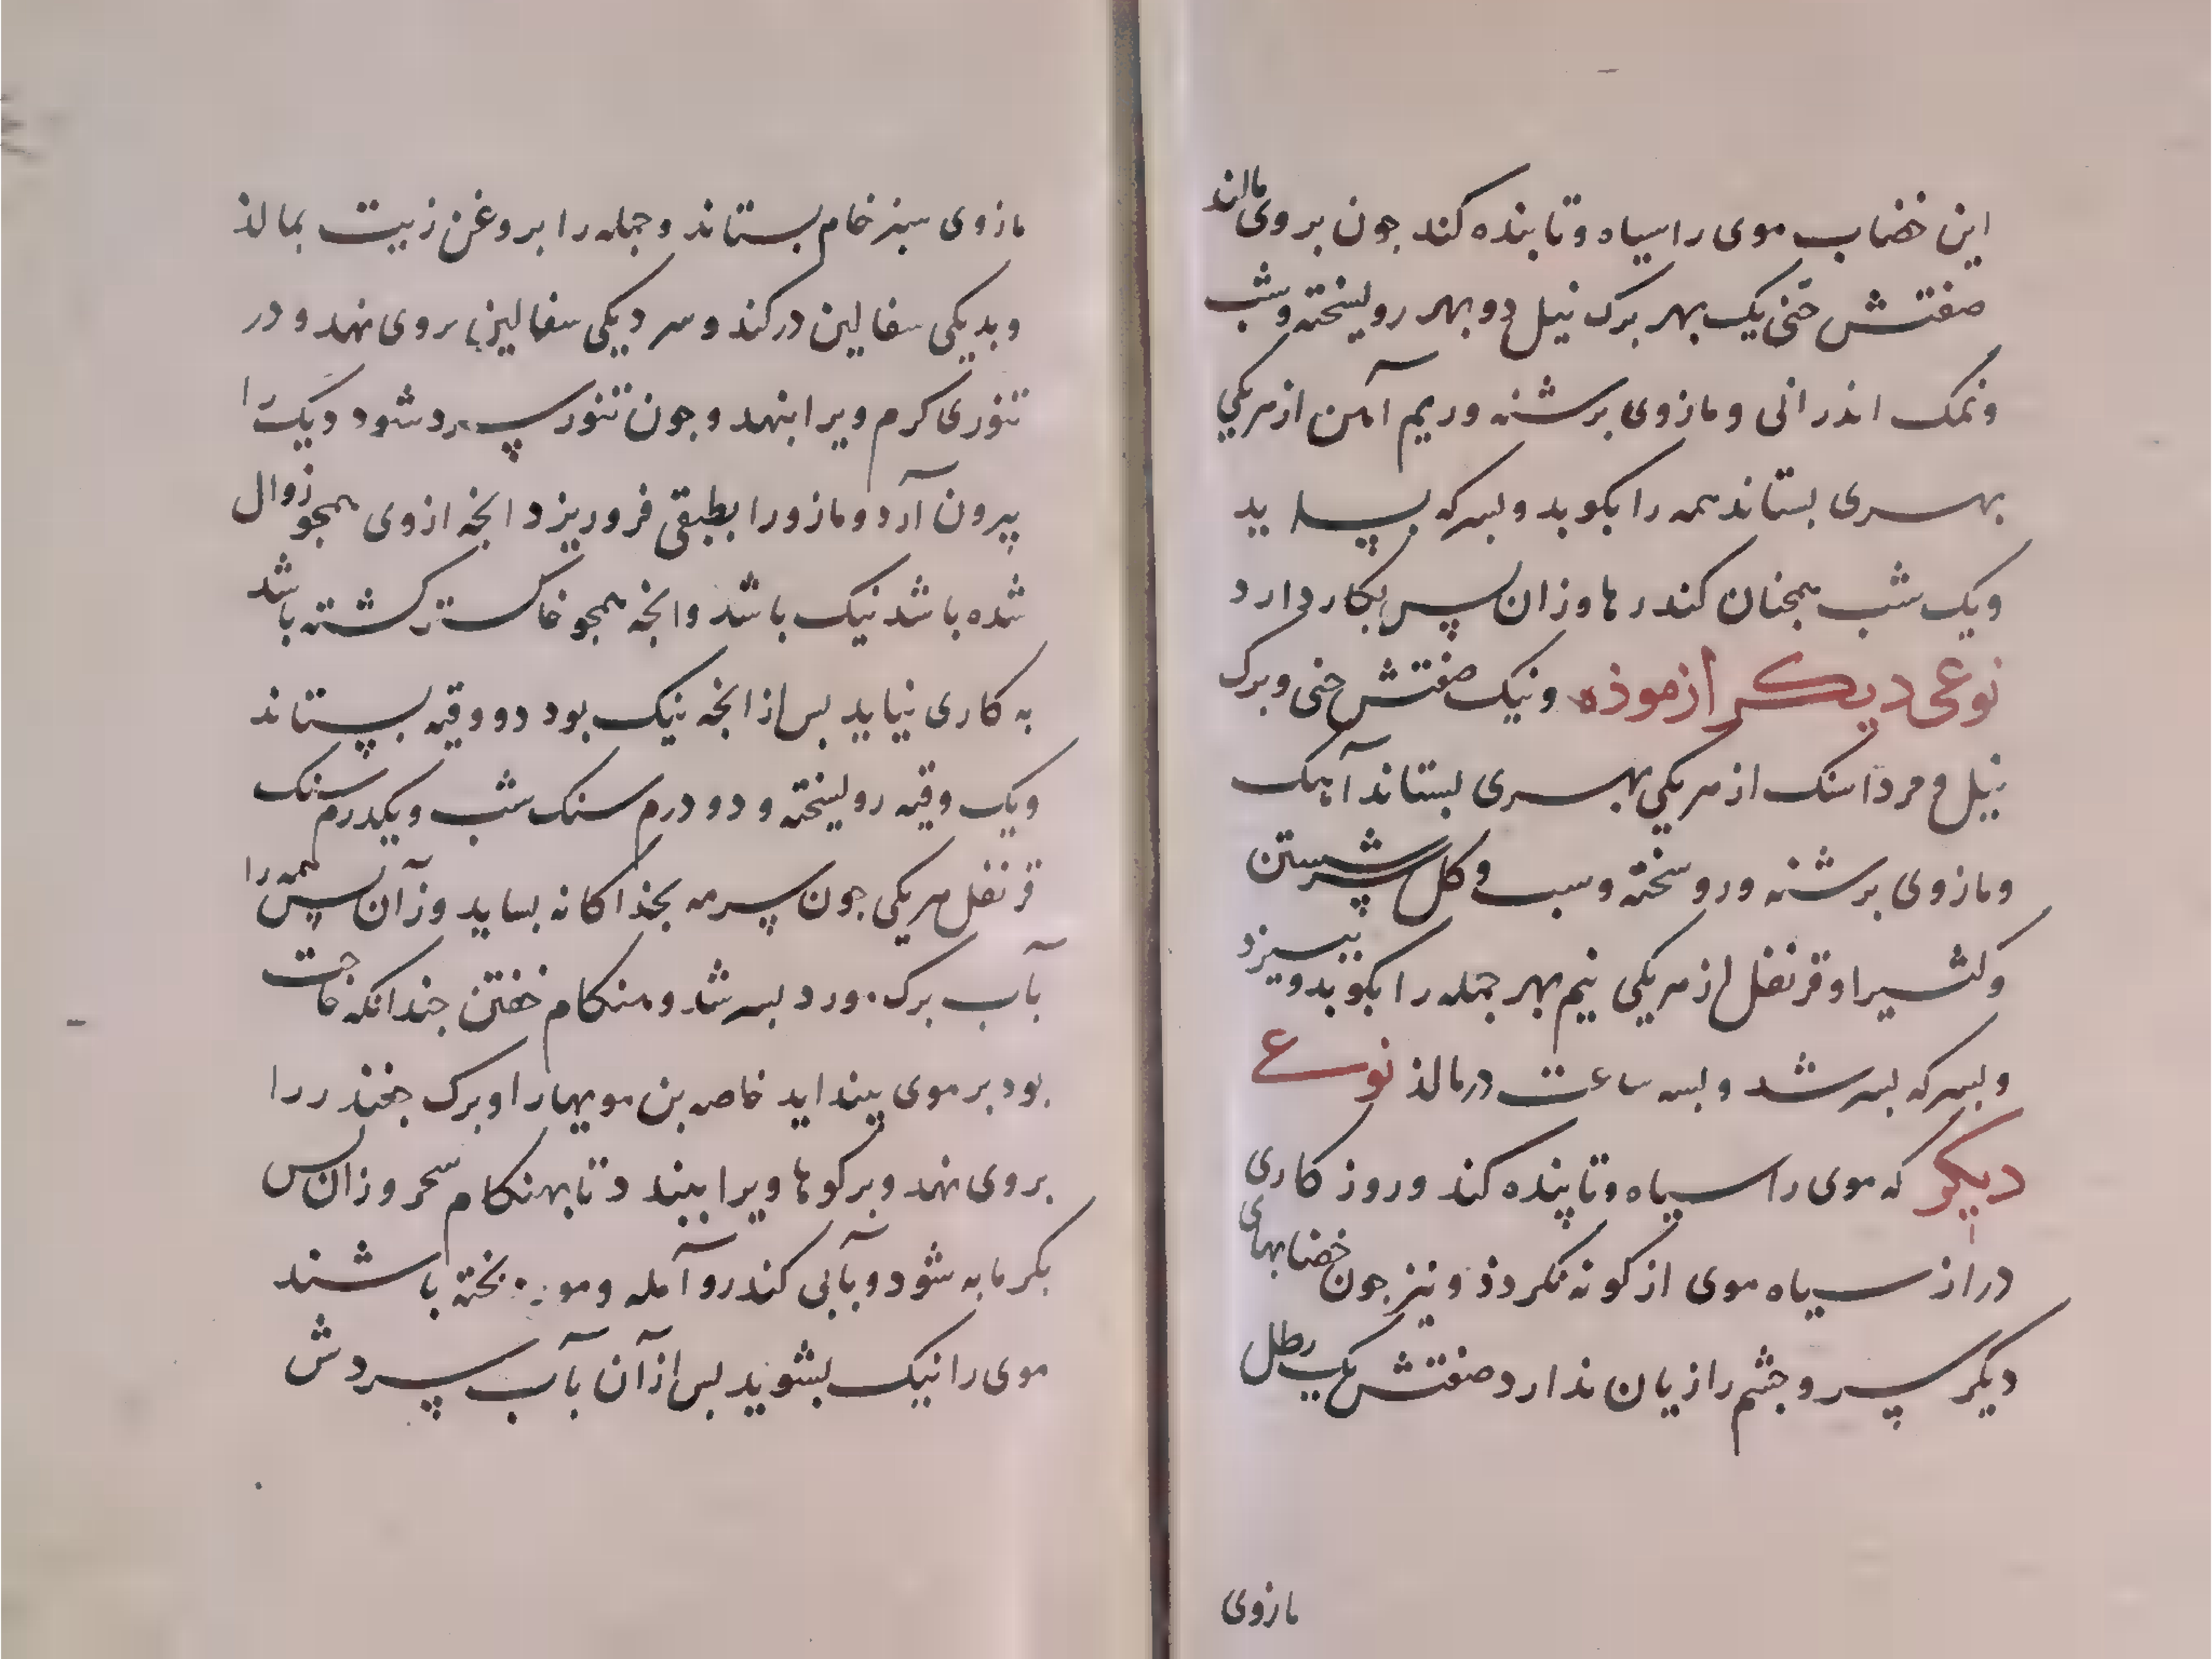 این خضاب موی را سیاه و تابنده کند جون بروی مالند
صفتش حنی یک بهر برک نیل دو بهر رویسخته و شب
و نمک اندرانی و مازوی برشته و ریم آهن از هریکی
بهری بستاند همه را بکوبد و بسرکه بساید
ویک شب همجنان کند رها وزان پس بکار دارد
نوعی دیکر ازموذه و نیک صفتش حنی و برک
نیل و مرداسنک از هریکی بهری بستاند آهک
و مازوی برشته و روسخته و سب و کل سرشستن
و کثیرا و قرنفل از هریکی نیم بهر جمله را بکوبد و ببیزد
و بسرکه بسرشد و بسه ساعت درمالذ نوع
دیکر که موی را سیاه و تابنده کند و روز کاری
دراز سیاه موی از کونه نکردذ و نیز جون خضابهای
دیکر سر و جشم را زیان ندارد صفتش یک رطل
مازوی
مازوی سبز خام بستاند و جمله را بروغن زیت بمالذ
و بدیکی سفالین درکند و سر دیکی سفالین بروی نهد و در
تنوری کرم ویرا بنهد و جون تنور سرد شود دیک را
بیرون آرد و مازو را بطبقی فروریزد انجه ازوی همجو زوال
شده باشد نیک باشد و انجه همجو خاکستر کشته باشد
به کاری نیاید بس از انجه نیک بود دو وقیه بستاند
ویک وقیه رویسخته و دو درم سنک شب و یکدرم سنک
قرنفل هریکی جون سرمه بجذاکانه بساید وزآن پس همه را
بآب برک مورد بسرشد و هنکام خفتن جندانکه حاجت
بود بر موی بینداید خاصه بن مویها را و برک جغندر را
بروی نهد و برکوها ویرا ببندد تا بهنکام سحر وزان بس
بکرمابه شود و بآبی کندرو آمله و مورد بخته باشند
موی را نیک بشوید بس ازآن بآب سردش